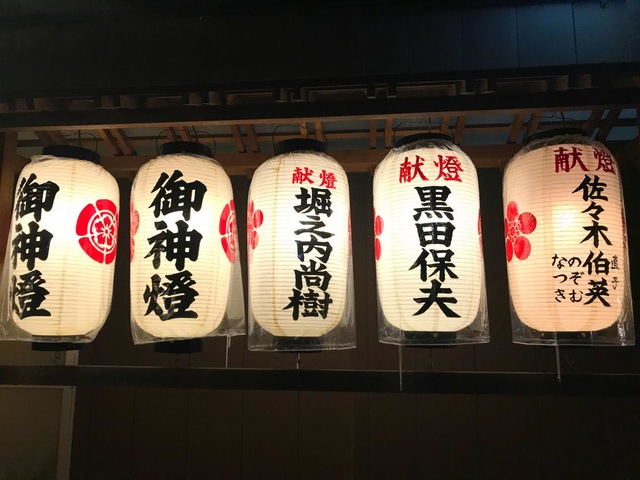 御神燈
御神燈
献燈
堀之内尚樹
献燈
黒田保夫
献燈
佐々木伯英
直子
のぞむ
なつき